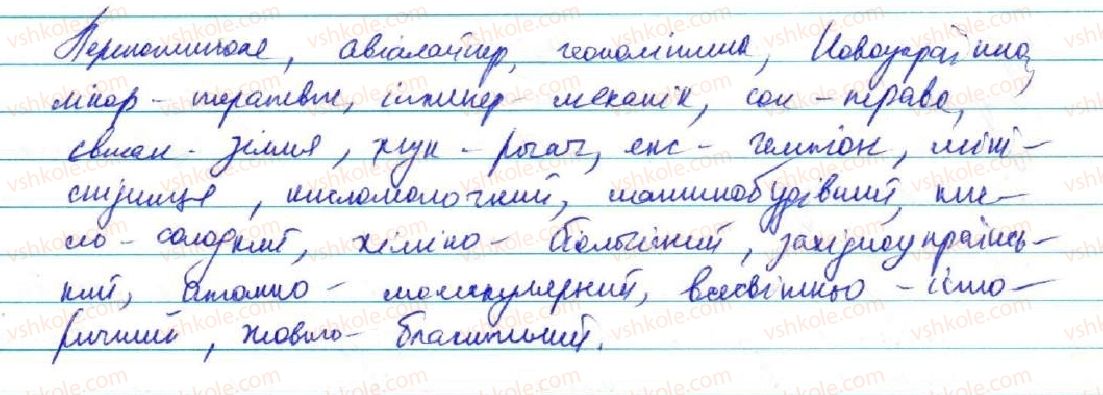 Перекотиполе, авіалайнер, геополітика, Новоукраїнка,
лікар - терапевт, інженер - механік, сон - трава,
євшан - зілля, жук - рогач, екс - чемпіон, міні -
спідниця, кисломолочний, машинобудівний, кис-
ло - солодкий, хіміко - біологічний, західноукраїнсь-
кий, атомно - молекулярний, всесвітньо - істо-
ричний, жовто - блакитний.